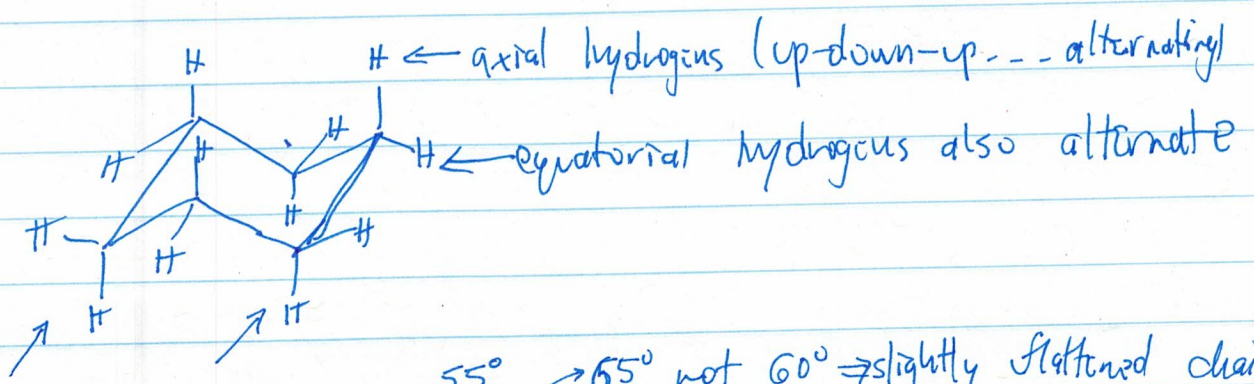 H H ← axial hydrogens (up-down-up... alternating)
H H H H ← equatorial hydrogens also alternate
H H H H
H H
55° →55° not 60° ⇒ slightly flattened chai